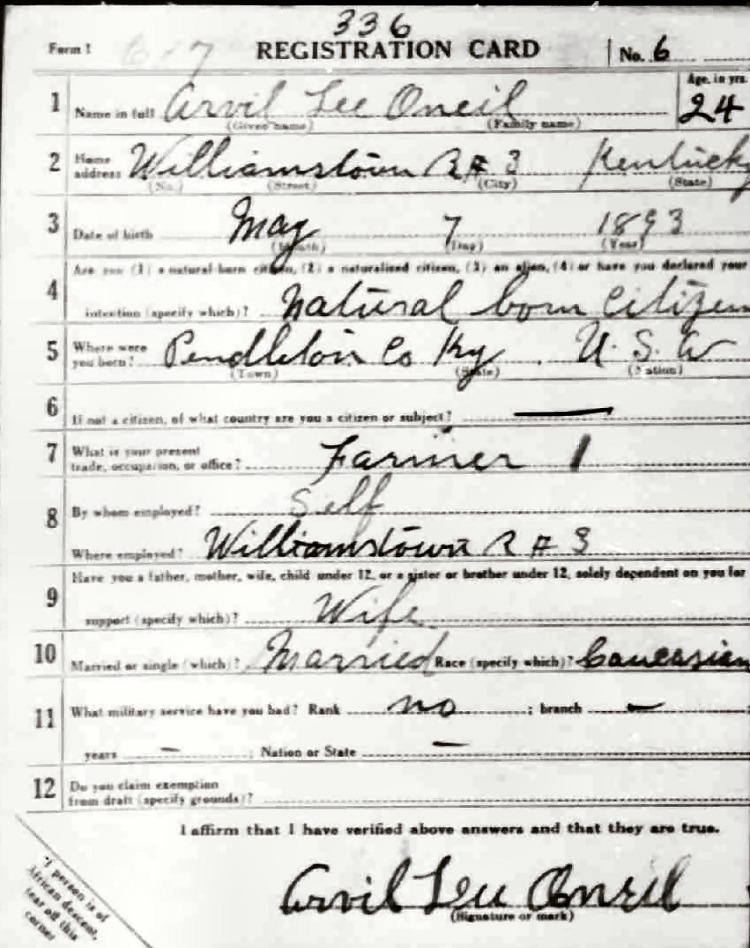 336
Form 1 REGISTRATION CARD No. 6
1 Name in full Arvil Lee Oneil Age, in yrs. 24
(Given name) (Family name)
2 Home address Williamstown R # 3 Kentucky
(No.) (Street) (City) (State)
3 Date of birth May 7 1893
(Month) (Day) (Year)
Are you (1) a natural-born citizen, (2) a naturalized citizen, (3) an alien, (4) or have you declared your
4 intention (specify which)? natural born Citizen
5 Where were you born? Pendleton Co Ky. U. S. A
(Town) (State) (Nation)
6 If not a citizen, of what country are you a citizen or subject? —
7 What is your present trade, occupation, or office? Farmer
8 By whom employed? Self
Where employed? Williamstown R # 3
Have you a father, mother, wife, child under 12, or a sister or brother under 12, solely dependent on you for
9 support (specify which)? Wife
10 Married or single (which)? Married Race (specify which)? Caucasian
11 What military service have you had? Rank no ; branch —
years — ; Nation or State —
12 Do you claim exemption from draft (specify grounds)?
I affirm that I have verified above answers and that they are true.
Arvil Lee Oneil
(Signature or mark)
person is of
African descent,
tear off this
corner